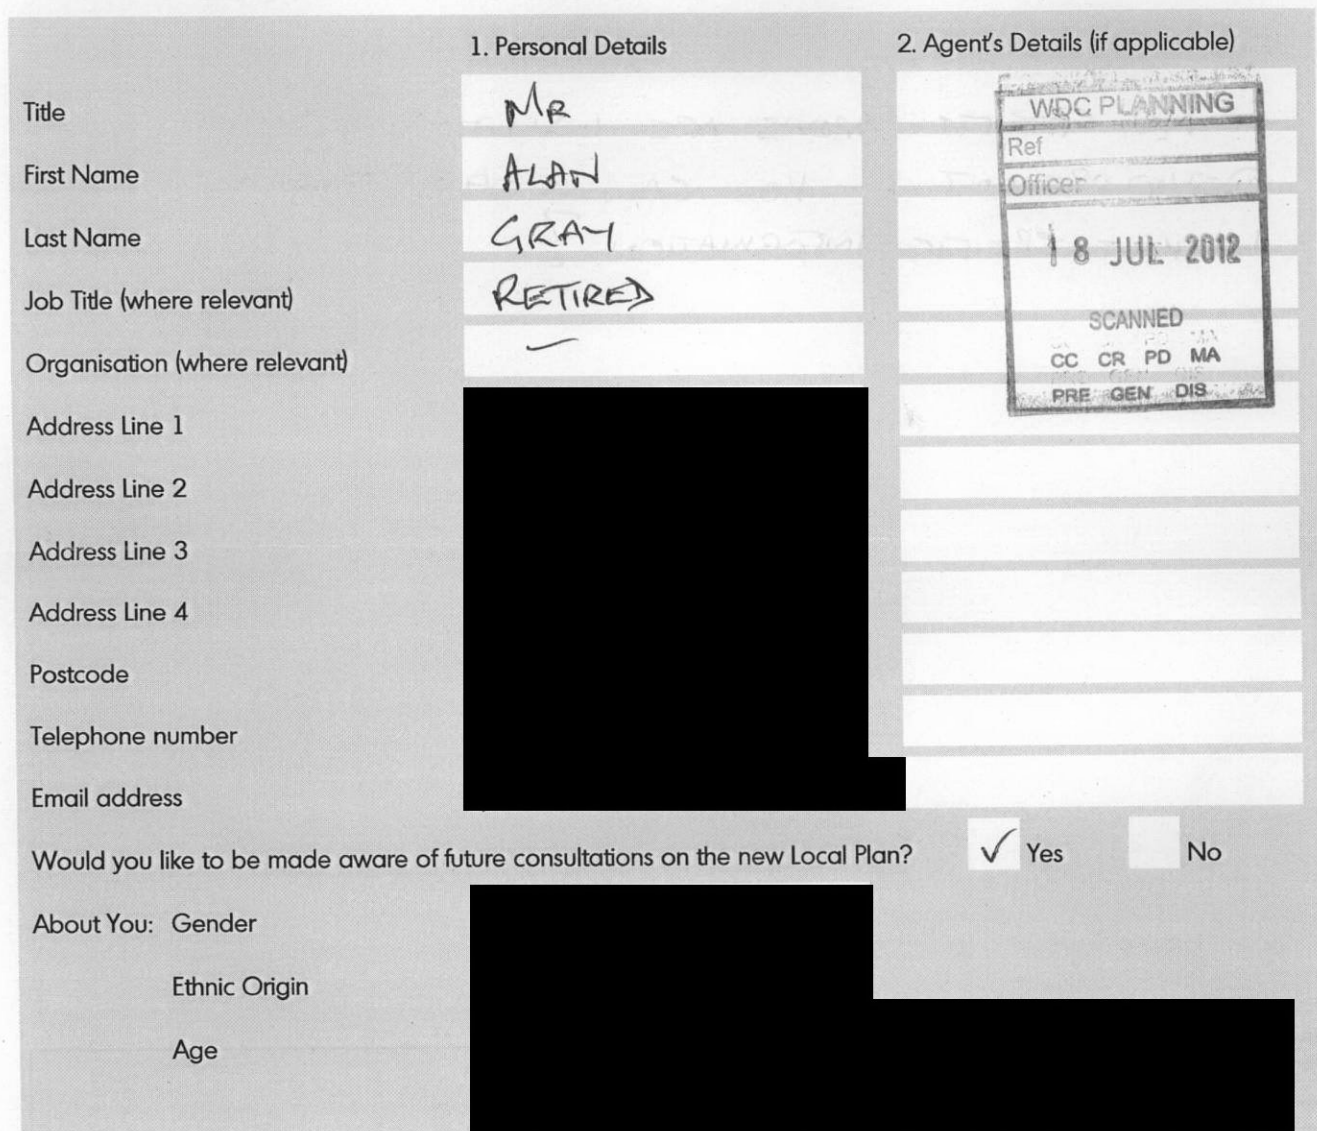 1. Personal Details
2. Agent's Details (if applicable)
Title
MR
First Name
ALAN
Last Name
GRAY
Job Title (where relevant)
RETIRED
Organisation (where relevant)
—
Address Line 1
Address Line 2
Address Line 3
Address Line 4
Postcode
Telephone number
Email address
WDC PLANNING
Ref
Officer
18 JUL 2012
SCANNED
CC CR PD MA
PRE GEN DIS
Would you like to be made aware of future consultations on the new Local Plan? ✓ Yes No
About You: Gender
Ethnic Origin
Age